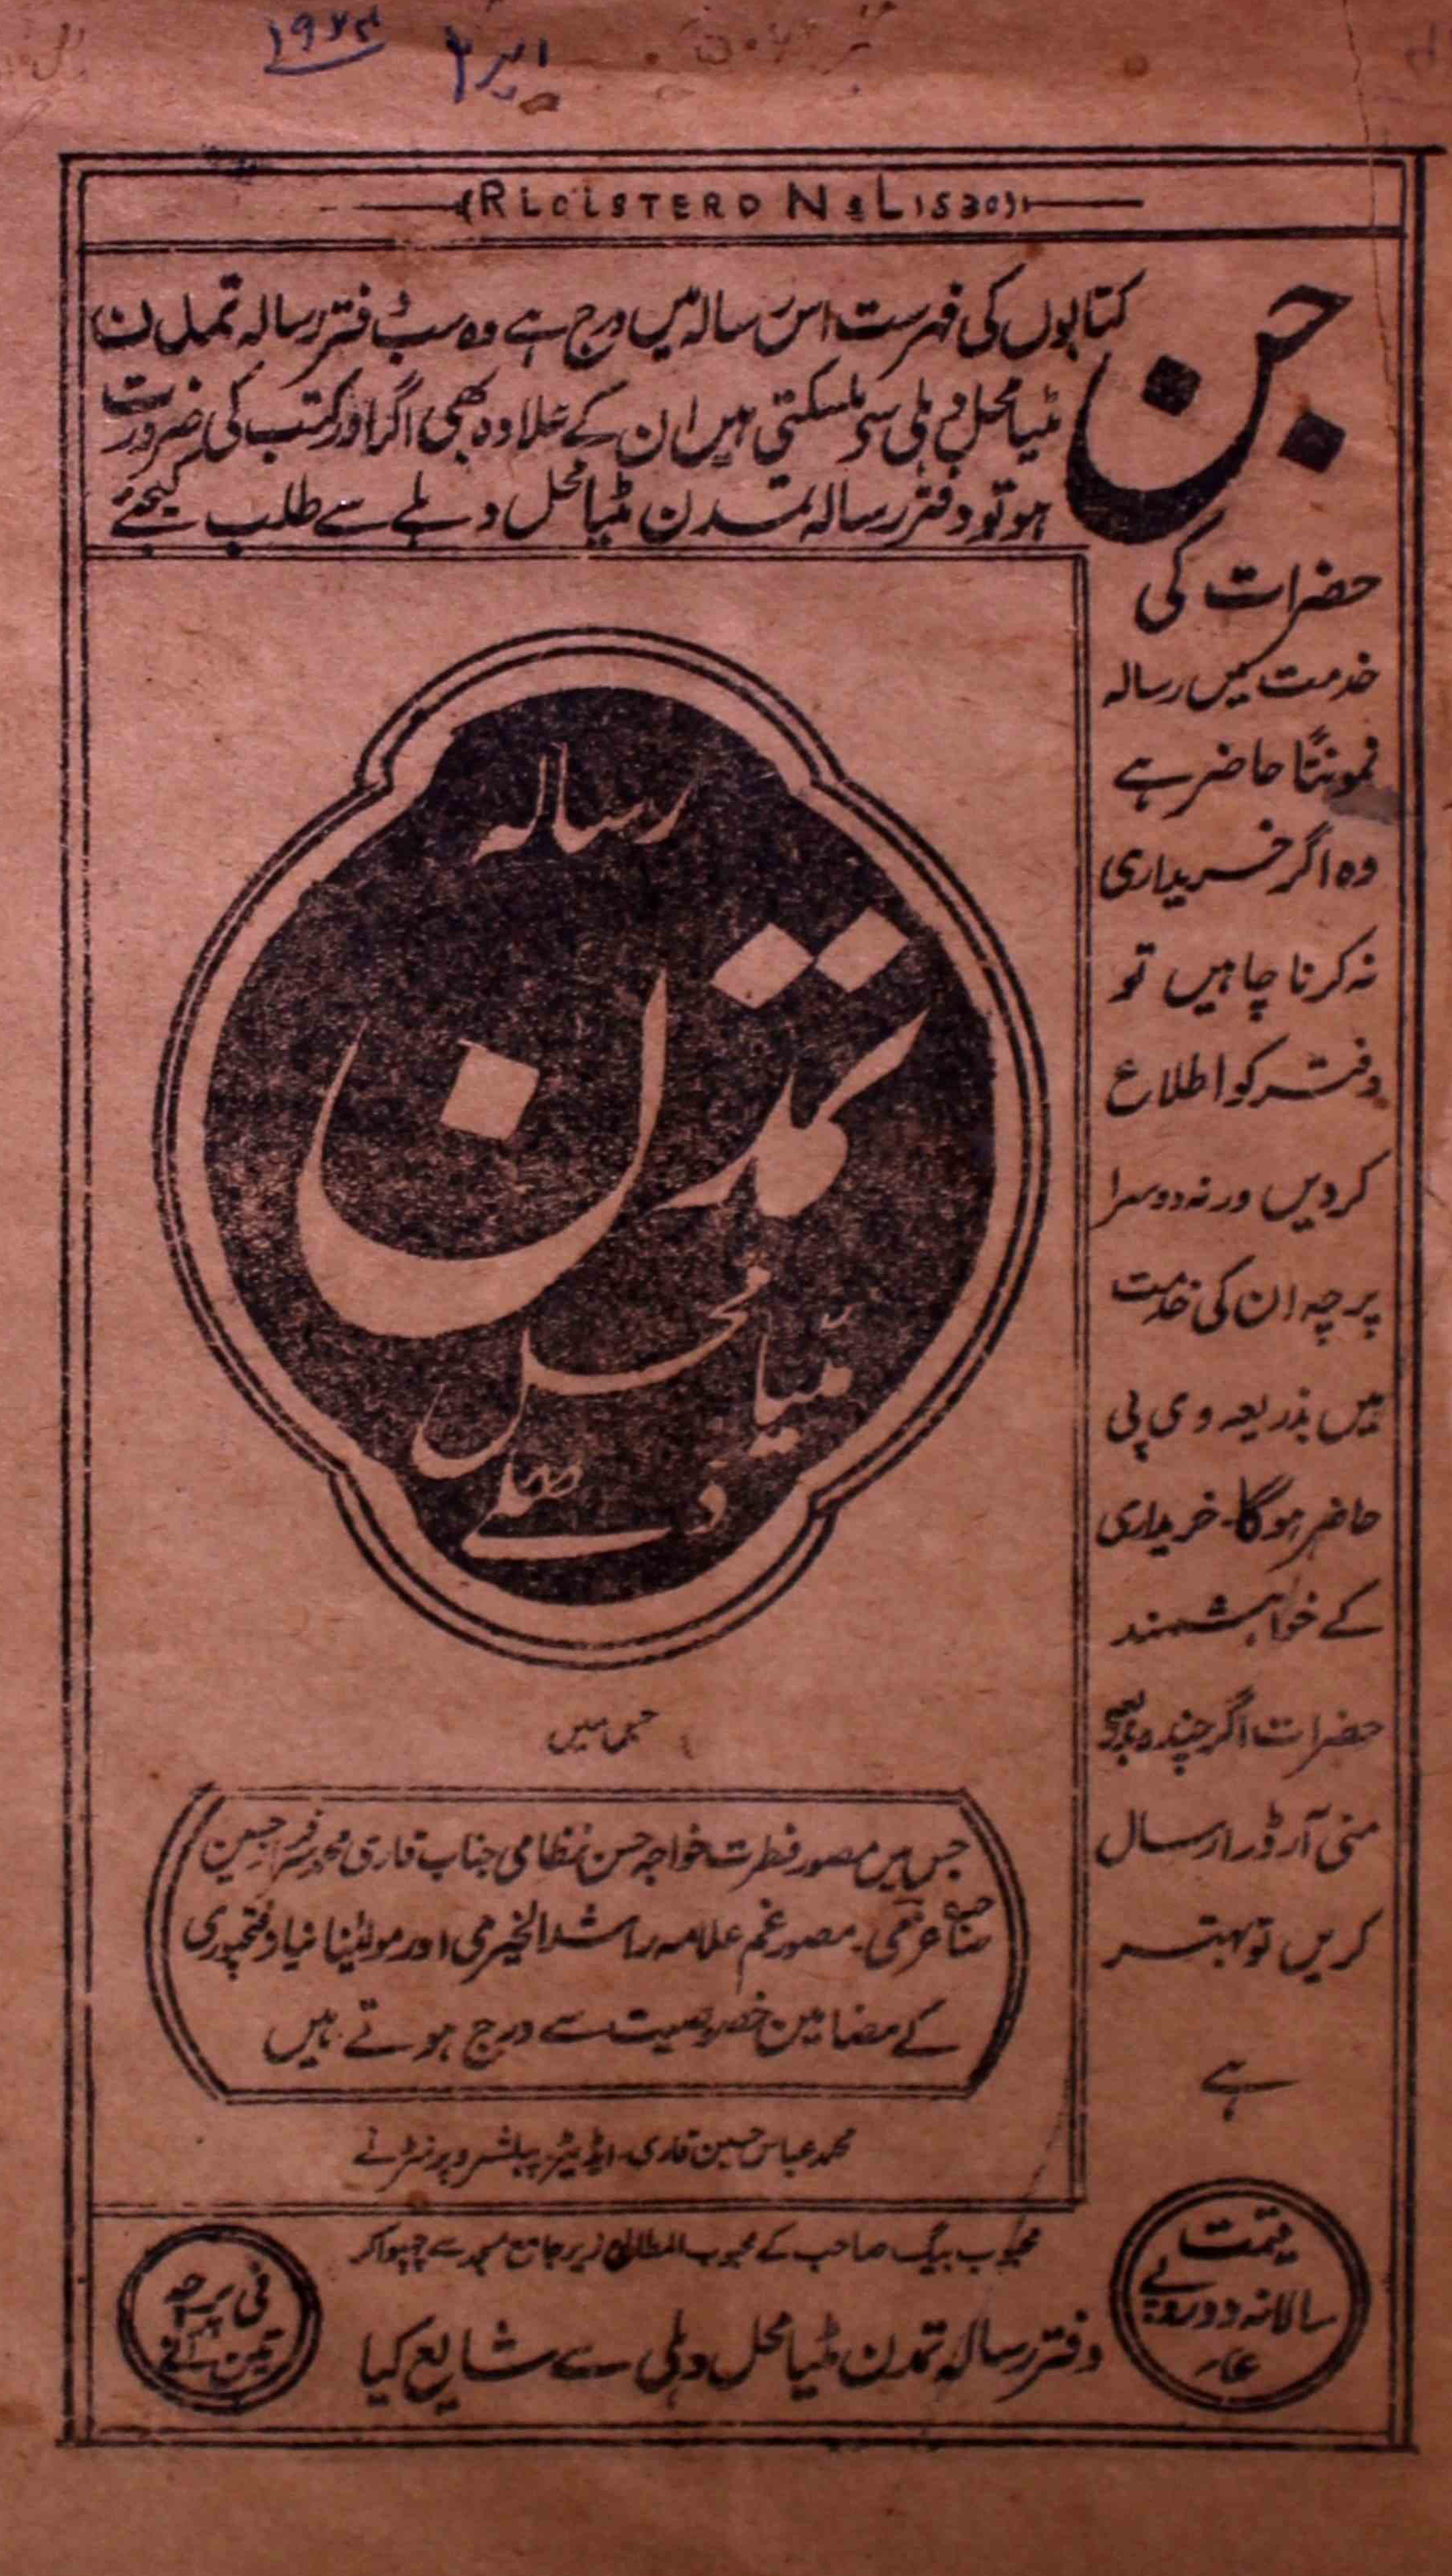 اپریل ۱۹۲۴
(REGISTERD No L 1530)
جن
کتابوں کی فہرست اس رسالہ میں درج ہے وہ سب دفتر رسالہ تمدن
مٹیا محل دہلی سے مل سکتی ہیں ان کے علاوہ بھی اگر اور کتب کی ضرورت
ہو تو دفتر رسالہ تمدن مٹیا محل دہلی سے طلب کیجئے
حضرات کی
خدمت میں رسالہ
نمونتًا حاضر ہے
وہ اگر خریداری
نہ کرنا چاہیں تو
دفتر کو اطلاع
کردیں ورنہ دوسرا
پرچہ ان کی خدمت
میں بذریعہ وی پی
حاضر ہوگا۔ خریداری
کے خواہشمند
حضرات اگر چندہ بذریعہ
منی آرڈر ارسال
کریں تو بہتر
ہے
رسالہ
تمدن
مٹیا محل
دہلی
جس میں
جس میں مصور فطرت خواجہ حسن نظامی جناب قاری محمد سرفراز حسین
صاحب عزمی۔ مصور غم علامہ راشد الخیری اور مولٰینا نیاز فتحپوری
کے مضامین خصوصیت سے درج ہوتے ہیں
محمد عباس حسین قاری۔ ایڈیٹر پبلشر و پرنٹر نے
محبوب بیگ صاحب کے محبوب المطابع زیر جامع مسجد سے چھپوا کر
دفتر رسالہ تمدن مٹیا محل دہلی سے شایع کیا
قیمت
سالانہ دو روپے
فی پرچہ
تین آنے